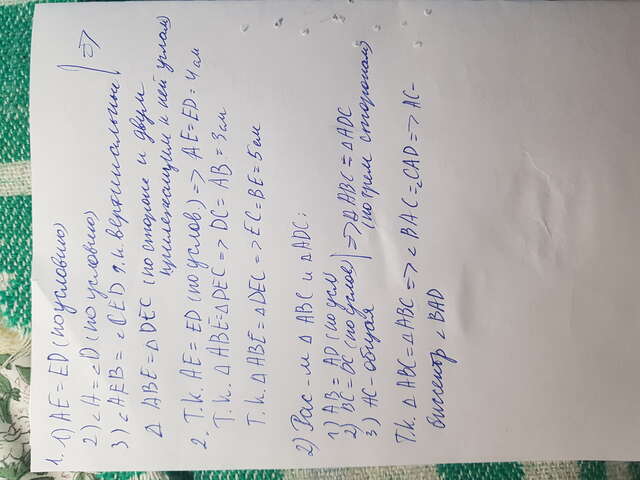 1. 1) AE = ED (по условию)
2) ∠A = ∠D (по условию)
3) ∠AEB = ∠CED т.к. вертикальные
⇒
△ ABE = △ DEC (по стороне и двум
прилежащим к ней углам)
2. Т.к. AE = ED (по услов.) => AE = ED = 4 см
Т.к. △ ABE = △ DEC => DC = AB = 3 см
Т.к. △ ABE = △ DEC => EC = BE = 5 см
2) Рас-м △ ABC и △ ADC:
1) AB = AD (по усл)
2) BC = DC (по услов) => △ ABC = △ ADC
3) AC - общая (по трем сторонам)
Т.к. △ ABC = △ ABC => ∠ BAC = ∠CAD => AC-
биссектр ∠ BAD